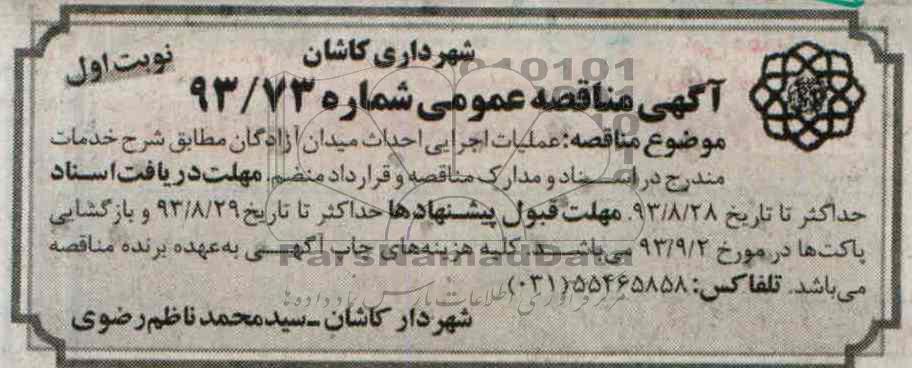 شهرداری کاشان
نوبت اول
آگهی مناقصه عمومی شماره ۹۳/۷۳
موضوع مناقصه: عملیات اجرایی احداث میدان آزادگان مطابق شرح خدمات
مندرج در اسناد و مدارک مناقصه و قرارداد منضم. مهلت دریافت اسناد
حداکثر تا تاریخ ۹۳/۸/۲۸. مهلت قبول پیشنهادها حداکثر تا تاریخ ۹۳/۸/۲۹ و بازگشایی
پاکت‌ها در مورخ ۹۳/۹/۲ می‌باشد. کلیه هزینه‌های چاپ آگهی به‌عهده برنده مناقصه
می‌باشد. تلفاکس: ۵۵۴۶۵۸۵۸(۰۳۱)
شهردار کاشان ـ سیدمحمد ناظم‌رضوی
ParsNamadData
مرکز فرآوری اطلاعات پارس نماد داده ها